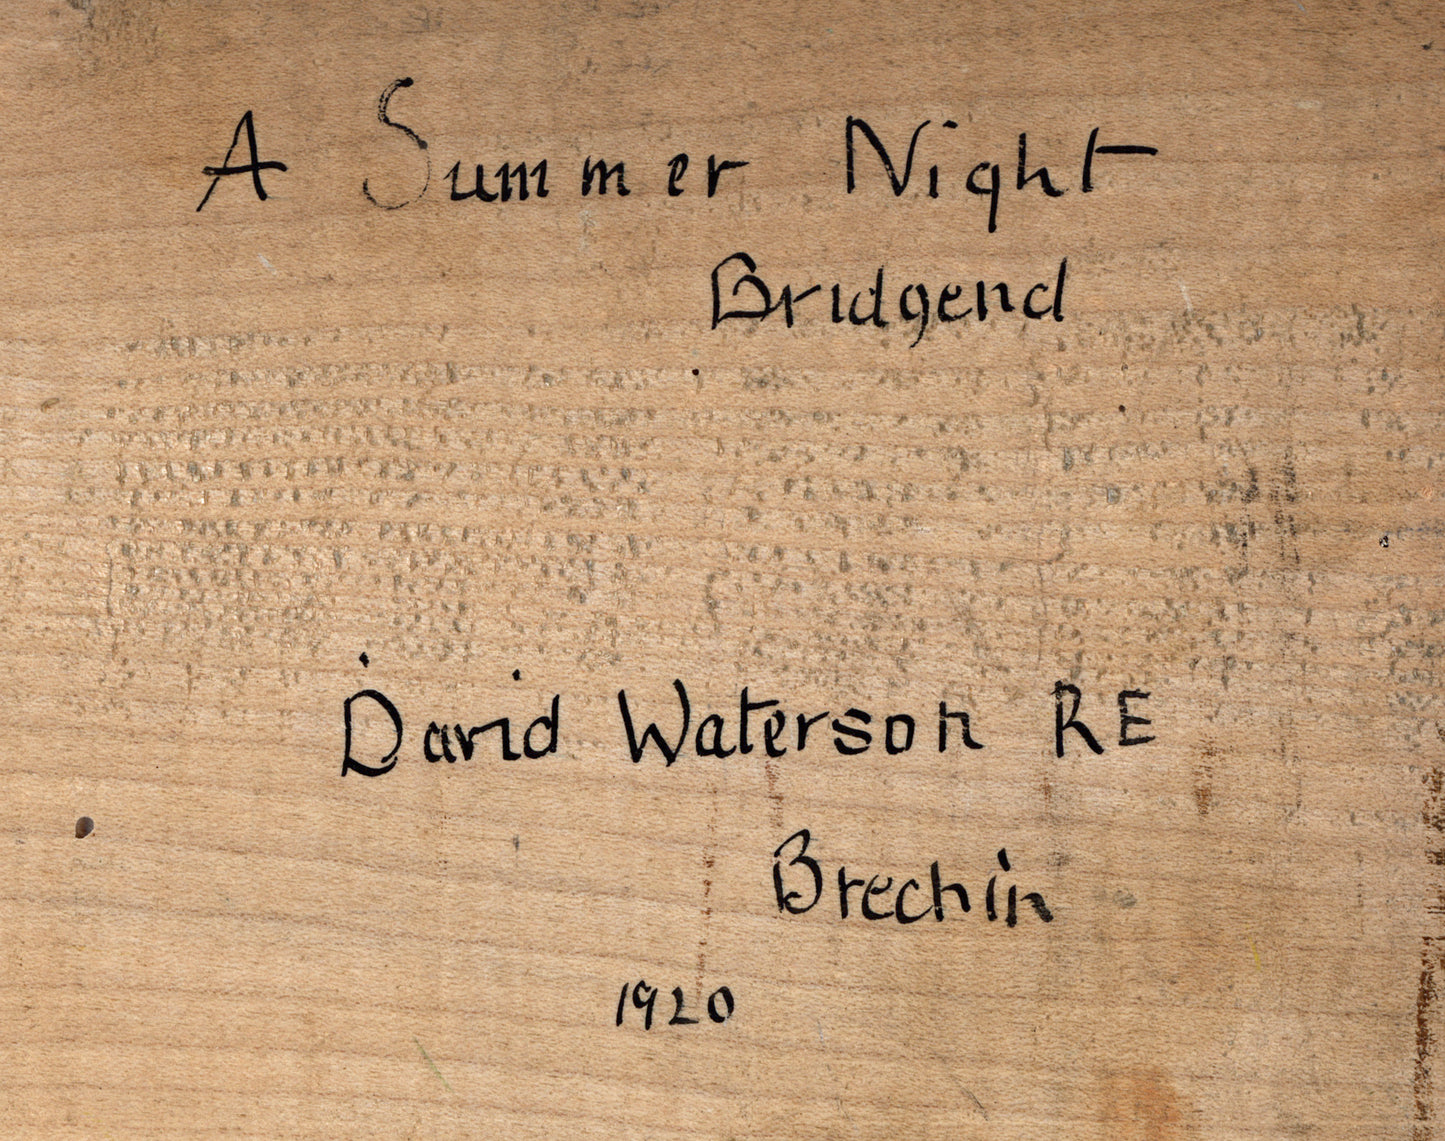 A Summer Night
Bridgend
David Waterson RE
Brechin
1920